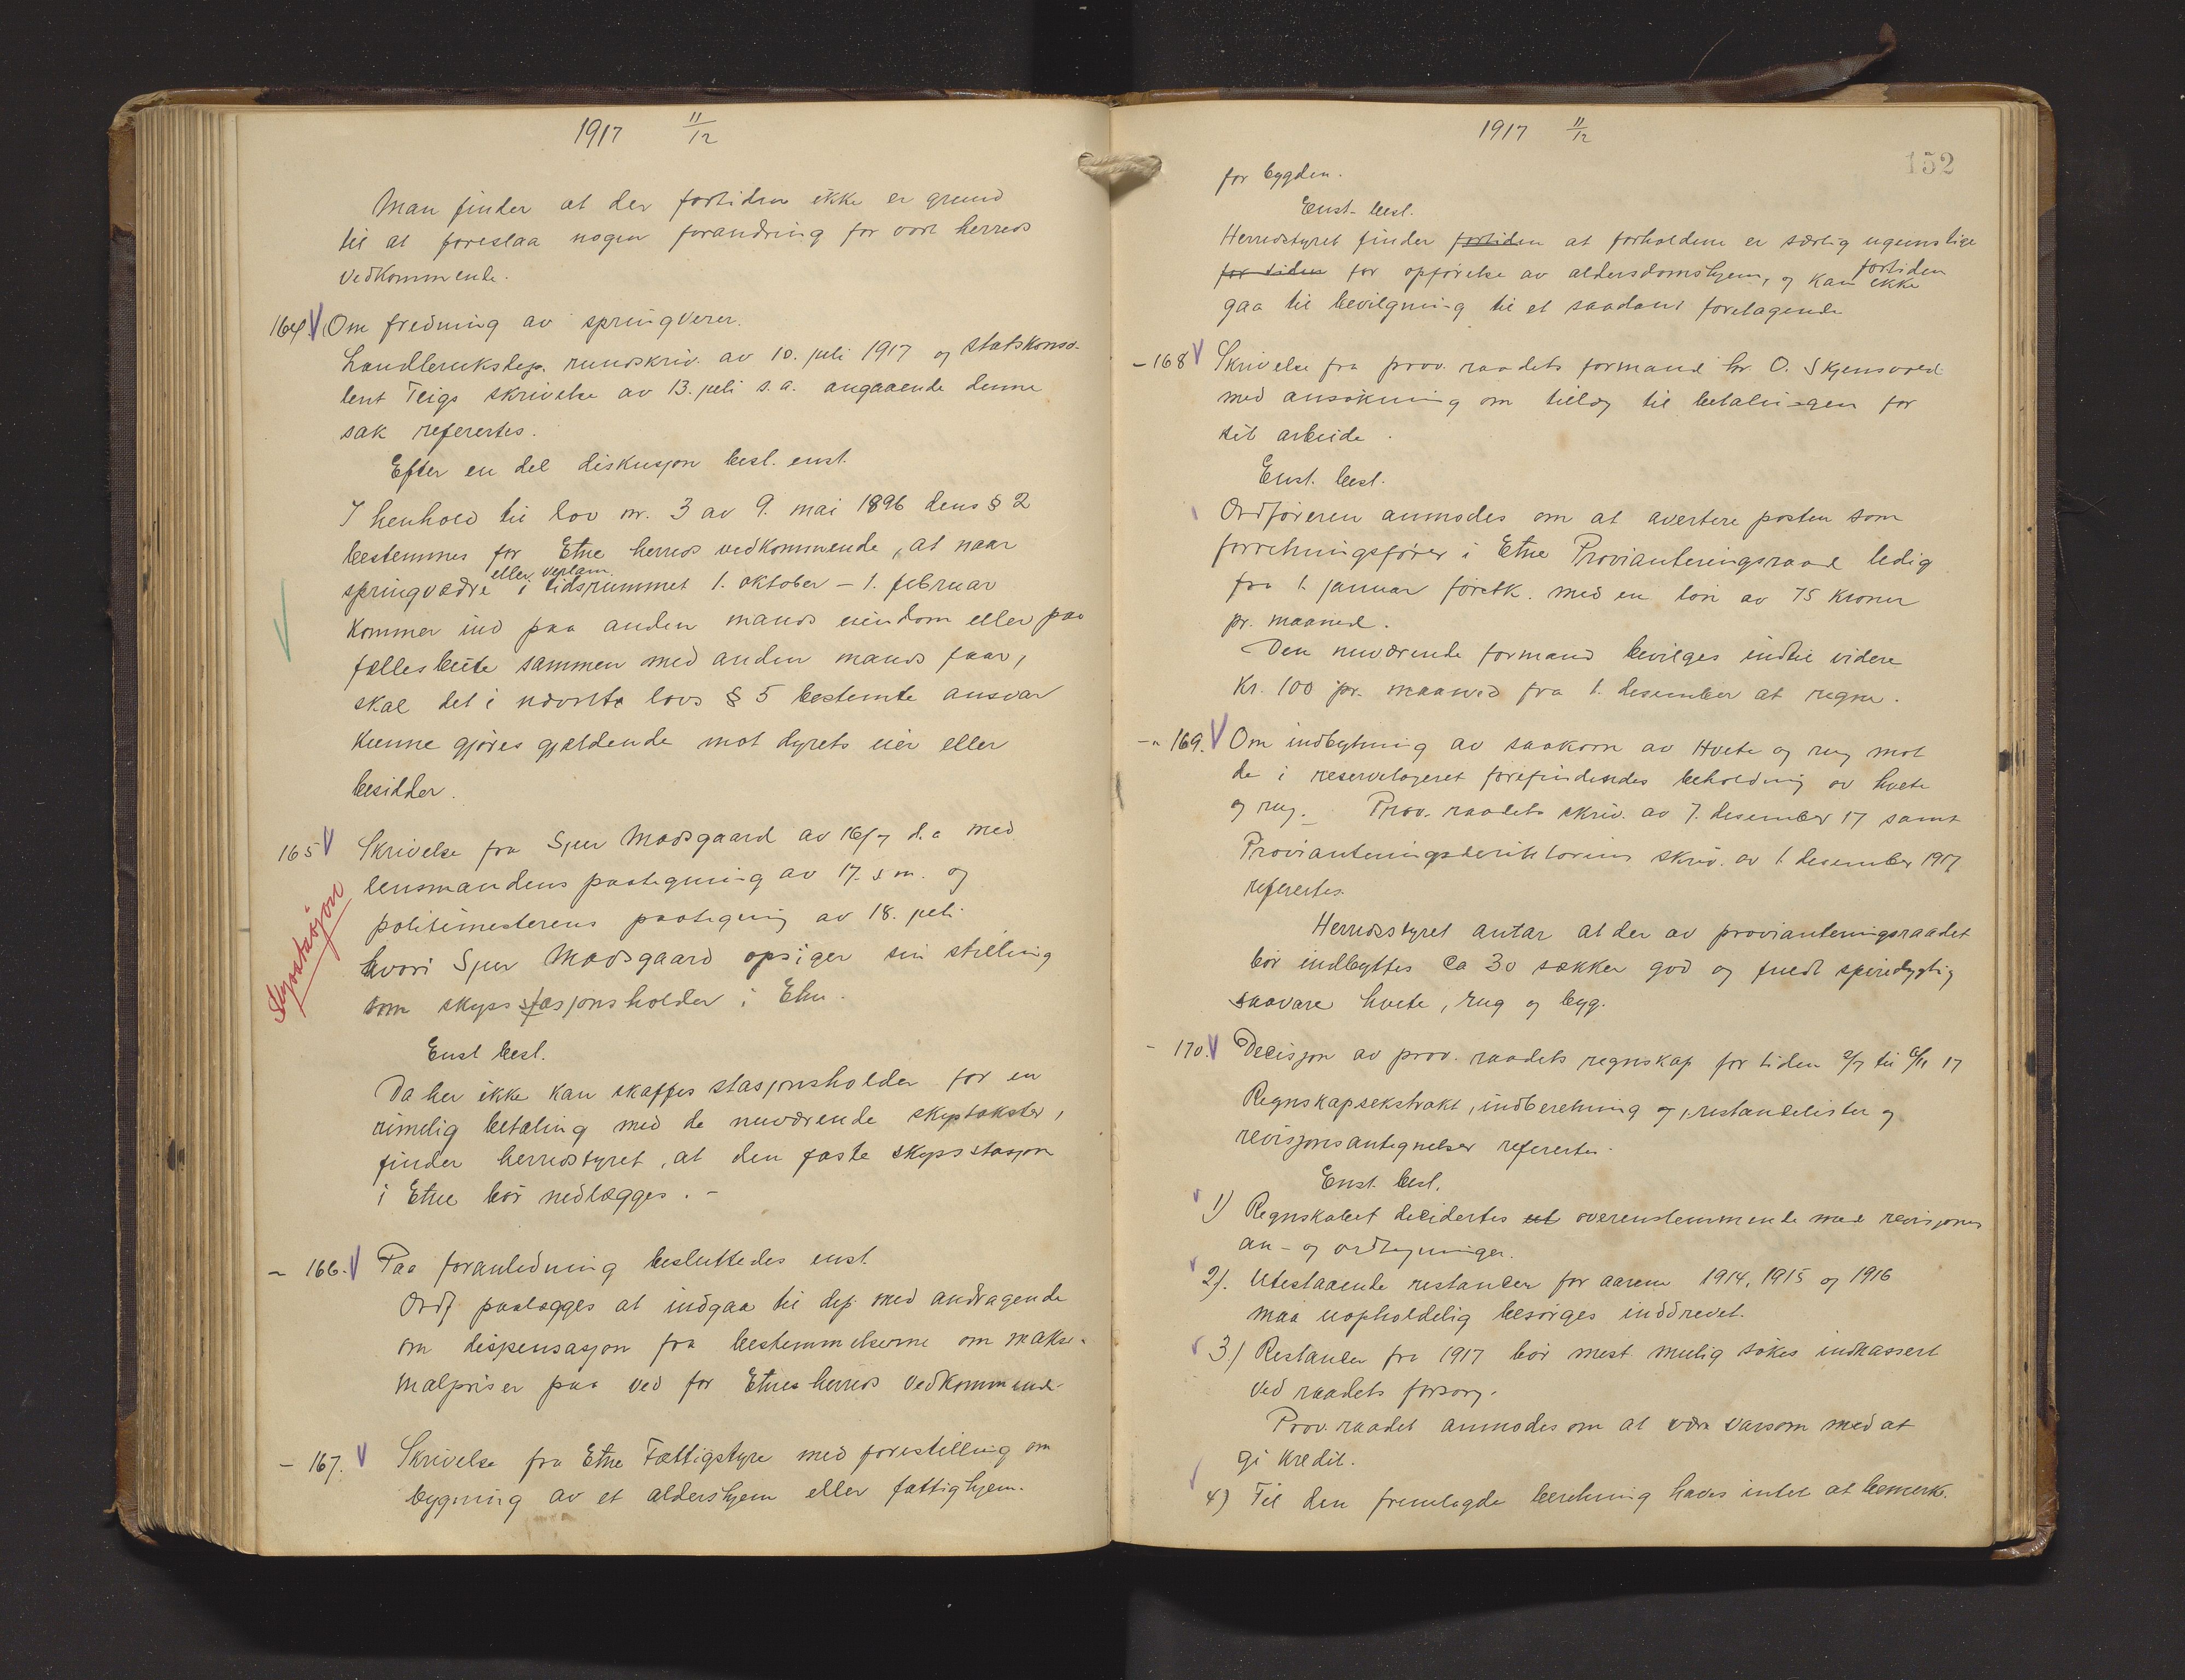 1917 11/12
Man finder at der fortiden ikke er grund
til at foreslaa nogen forandring for vort herreds
vedkommende.
164. Om fredning av springverer.
Landbruksdep. rundskriv. av 10. juli 1917 og statskonsu-
lent Teigs skrivelse av 13. juli s.a. angaaende denne
sak refertes.
Efter en del diskusjon besl. enst.
I henhold til lov nr. 3 av 9. mai 1896 dens § 2
bestemmes for Etne herreds vedkommende, at naar
eller verlam.
springvedre i tidsrummet 1. oktober - 1. februar
kommer ind paa anden mands eiendom eller paa
fællesbeite sammen med anden mands faar,
skal det i nævnte lovs § 5 bestemte ansvar
kunne gjøres gjældende mot dyrets eier eller
besidder.
165 Skrivelse fra Sjur Madsgaard av 16/7 d.a med
lensmandens paategning av 17. s m. og
politimesterens paategning av 18. juli
hvori Sjur Madsgaard opsiger sin stilling
som skyss stasjonsholder i Etne.
Skysstasjon
Enst besl.
Da her ikke kan skaffes stasjonsholder for en
rimelig betaling med de nuværende skystakster,
finder herredstyret, at den faste skysstasjon
i Etne bør nedlægges. -
- 166. Paa foranledning besluttedes enst.
Ordf paalægges at indgaa til dep. med andragende
om dispensasjon fra bestemmelserne om maksi-
malpriser paa ved for Etnes herreds vedkommende.
- 167. Skrivelse fra Etne Fættigstyre med forestilling om
bygning av et aldershjem eller fattighjem.
1917 11/12
152
for bygden.
Enst. besl.
Herredstyret finder fortiden at forholdene er særlig ugunstige
fortiden
for tiden for opførelse av aldersdomshjem, og kan ikke
gaa til bevilgning til et saadant foretagende
- 168 Skrivelse fra prov. raadets formand hr. O. Skjensvold
med ansøkning om tillæg til betalingen for
sit arbeide.
Enst. besl.
Ordføreren anmodes om at avertere posten som
forretningsfører i Etne Provianteringsraad ledig
fra 1. januar førstk. med en løn av 75 kroner
pr. maaned.
Den nuværende formand bevilges indtil videre
Kr. 100 pr. maaned fra 1. desember at regne.
- 169. Om indbytning av saakorn av Hvete og rug mot
de i reservelageret forefindendes beholdning av hvete
og rug. Prov. raadets skriv. av 7. desember 17 samt
Provianteringsdirektørens skriv. av 1. desember 1917
refertes.
Herredsstyret antar at der av provianteringsraadet
bør indbyttes ca 30 sækker god og fuldt spiredygtig
saavare hvete, rug og byg.
- 170. Decisjon av prov. raadets regnskap for tiden til 17
Regnskapsekstrakt, indberetning og, restancelister og
revisjonsantegnelser refertes.
Enst. besl.
1) Regnskabet decidertes ut overenstemmende med revisjones
an- og
2). Utestaaende restancer for aarene 1914, 1915 og 1916
maa uopholdelig besørges inddrevet.
3.) Restancer fra 1917 bør mest mulig søkes indkassert
ved raadets forsorg.
Prov. raadet anmodes om at være varsom med at
gi kredit.
4) Til den fremlagde beretning haves intet at bemerk.